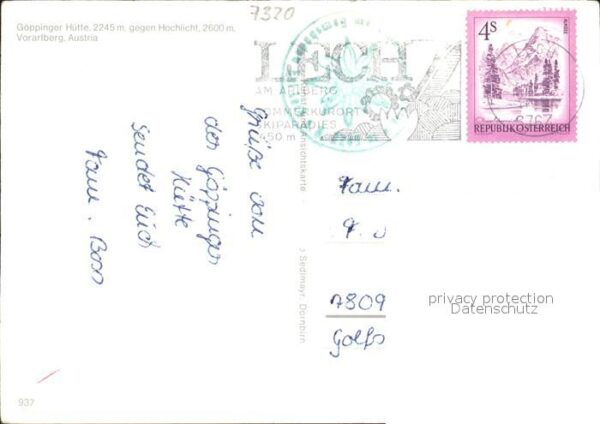 7320
Göppinger Hütte, 2245 m, gegen Hochlicht, 2600 m,
Vorarlberg, Austria
LECH
AM ARLBERG
SOMMERKURORT
SKIPARADIES
1450 m
4S
REPUBLIK ÖSTERREICH
6767
Grüße von
der Göppinger
Hütte
sendet Euch
Fam.
Ansichtskarte
Sedlmayr, Dornbirn
Fam.
7809
privacy protection
Datenschutz
937